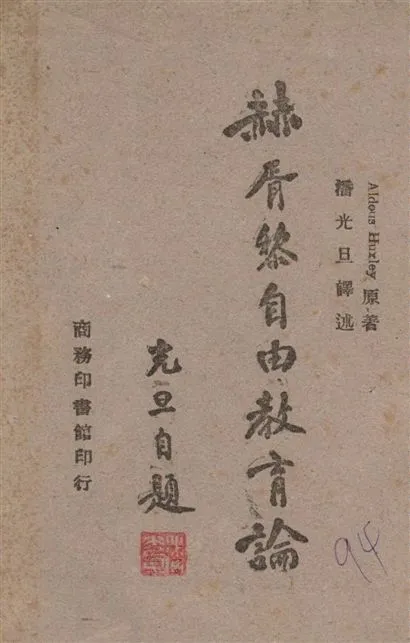 Aldous Huxley 原著
潘光旦譯述
赫胥黎自由教育論
光旦自題
商務印書館印行
94